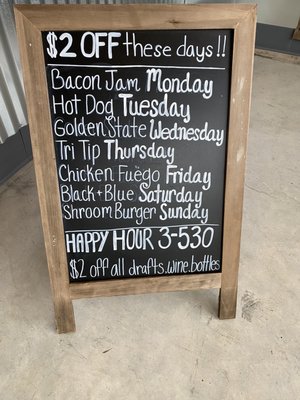 $2 OFF these days!!
Bacon Jam Monday
Hot Dog Tuesday
Golden State Wednesday
Tri Tip Thursday
Chicken Fuego Friday
Black+Blue Saturday
Shroom Burger Sunday
HAPPY HOUR 3-530
$2 off all drafts.wine.bottles